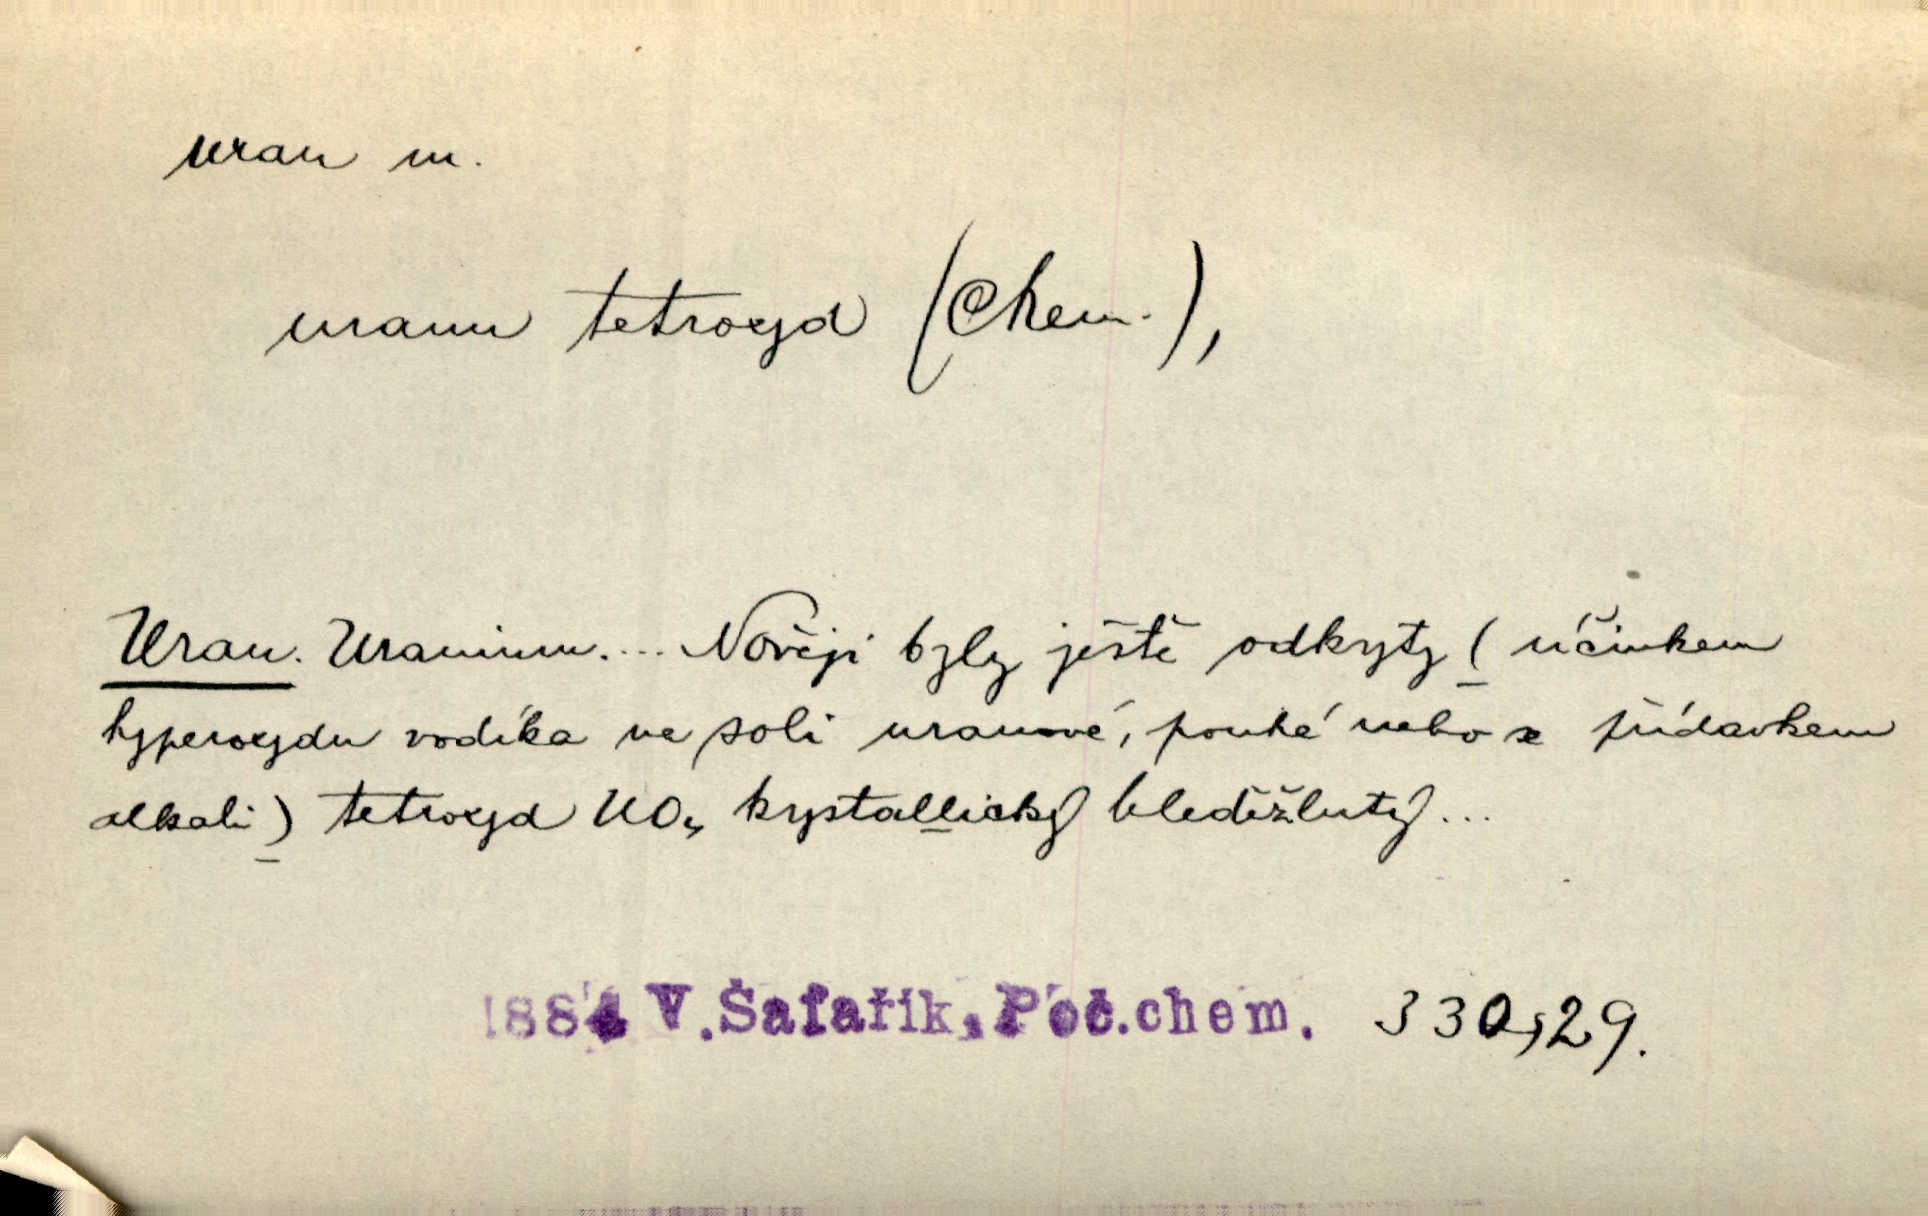 uran m.
uranu tetroxyd (Chem.),
Uran. Uranium.... Nověji byly ještě odkryty ( účinkem
hyperoxydu vodíka ve soli uranové, pouhé nebo s přídavkem
alkali) tetroxyd UO₄, krystallický bleděžlutý...
1884 V.Šafařík, Poč.chem. 330,29.